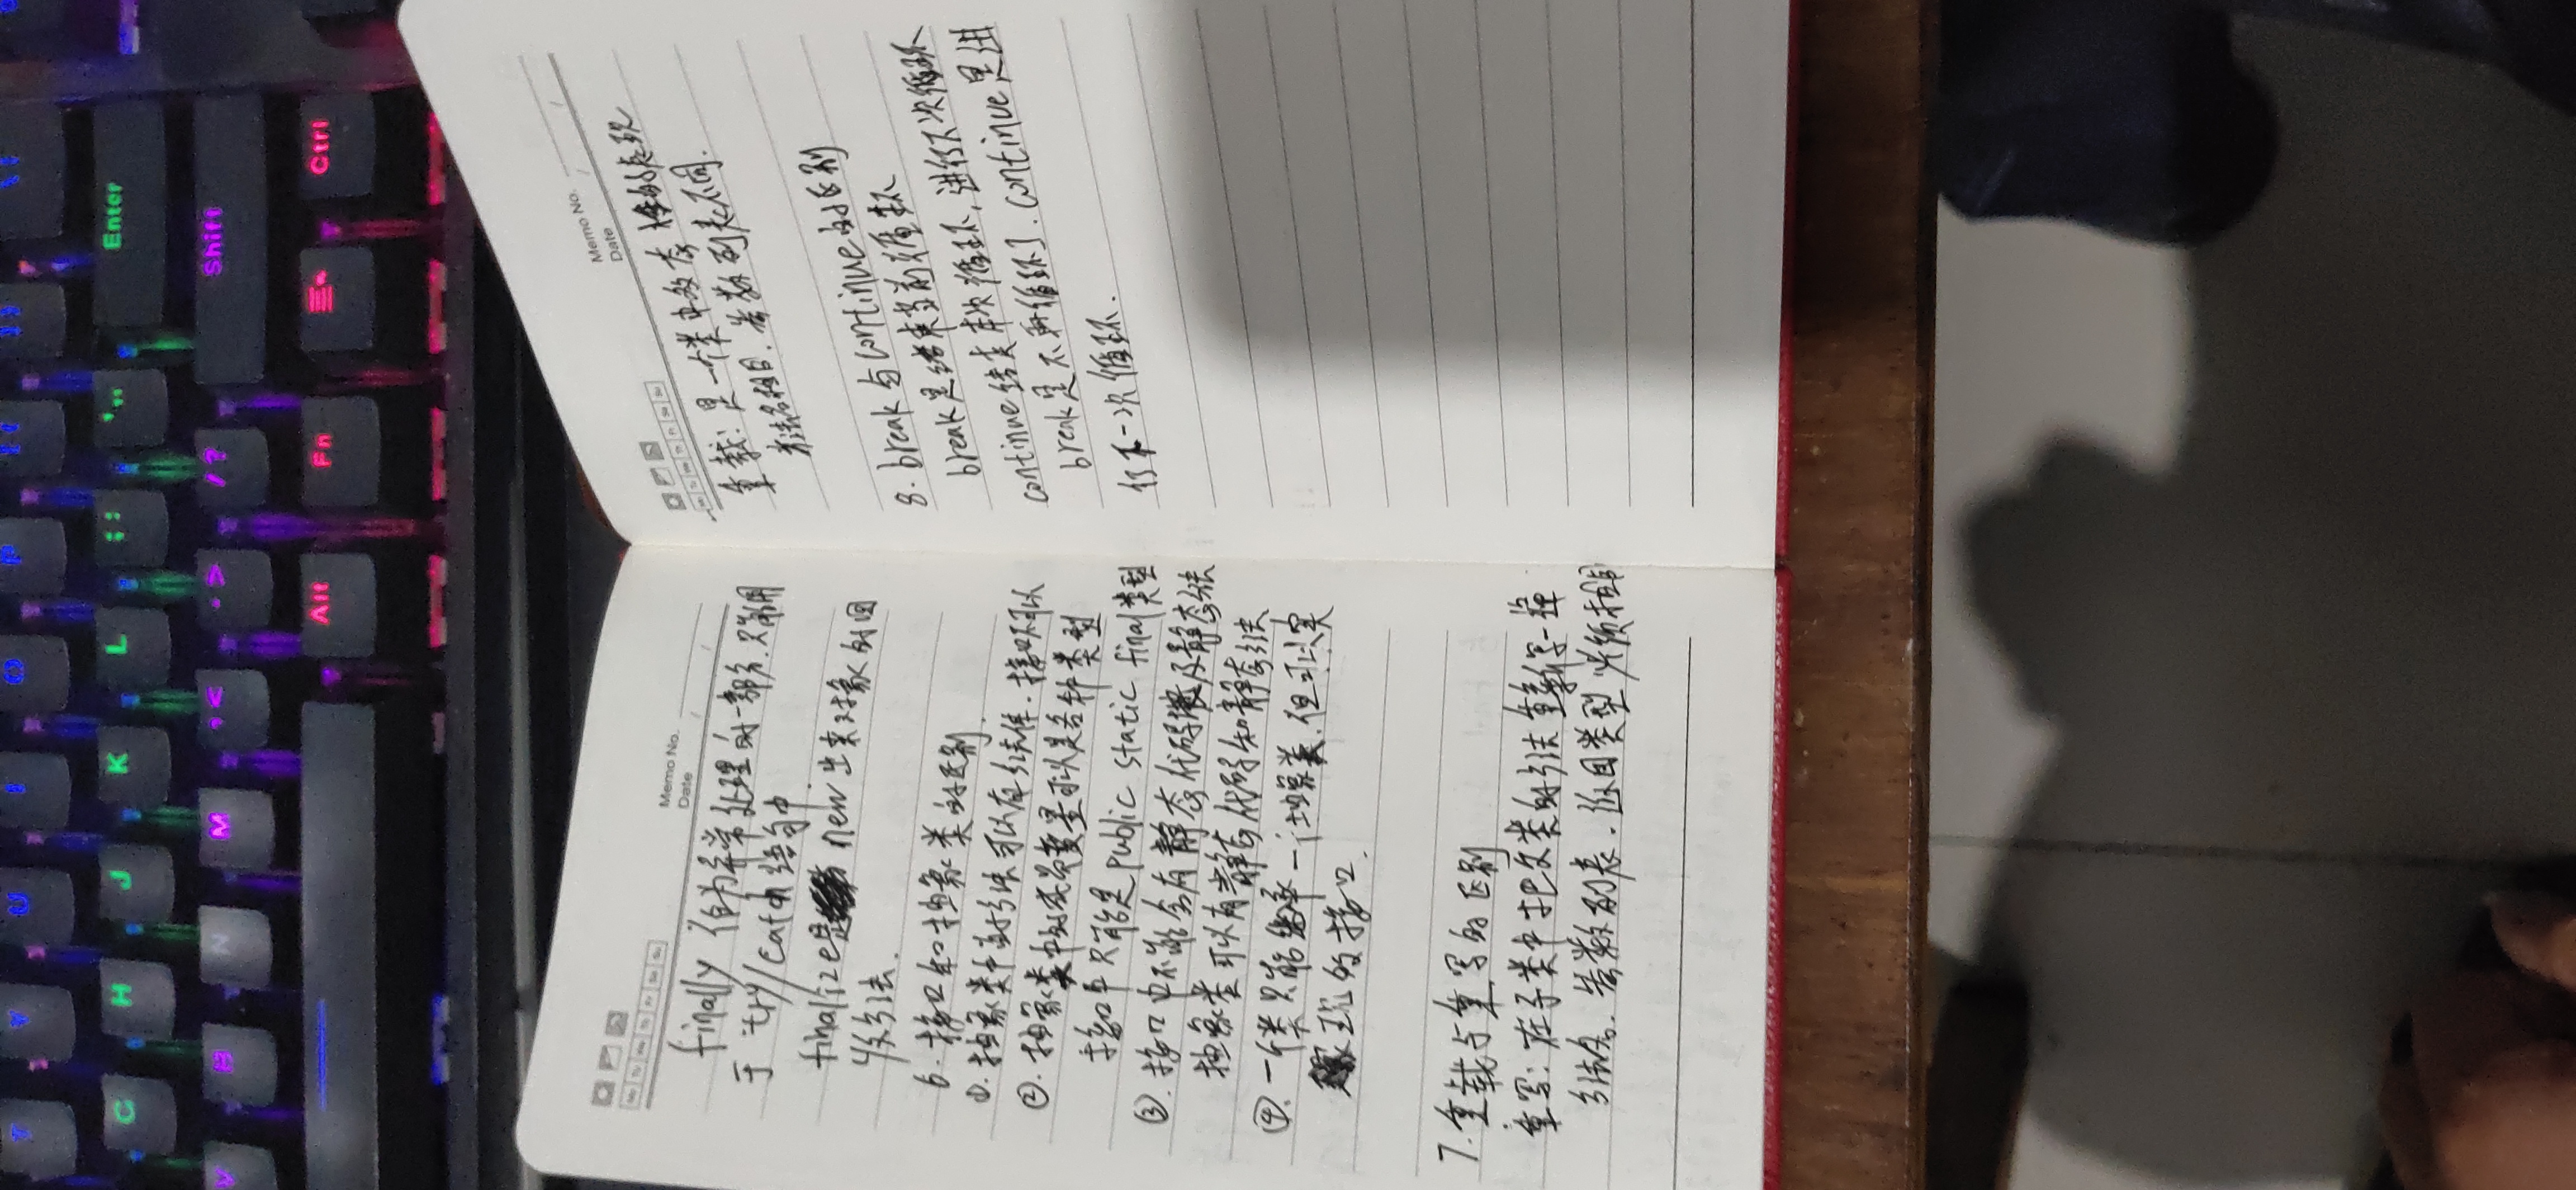 T Y U I O P [{ ]} \|
G H J K L ;: '" Enter
V B N M ,< .> /? Shift
Alt Fn Ctrl
Mo Tu We Th Fr Sa Su
Memo No.
Date / /
finally 作为异常处理的一部分.只能用
于 try/catch语句中.
finalize是 new出来对象的回
收方法.
6.接口和抽象类的区别.
①.抽象类中的方法可以有方法体.接口不可以
②.抽象类中的成员变量可以是各种类型
接口中只能是public static final类型
③.接口中不能含有静态代码块及静态方法
抽象类可以有静态代码和静态方法
④.一个类只能继承一个抽象类.但可以实
现的接口.
7.重载与重写的区别
重写:在子类中把父类的方法重新写一遍
方法名.参数列表.返回类型必须相同
Memo No.
Date / /
Mo Tu We Th Fr Sa Su
重载:是一个类中多态性的表现
方法名相同.参数列表不同.
8.break与continue的区别
break是结束当前循环
continue结束本次循环,进行下次循环
break是不再循环了.continue是进
行下一次循环.